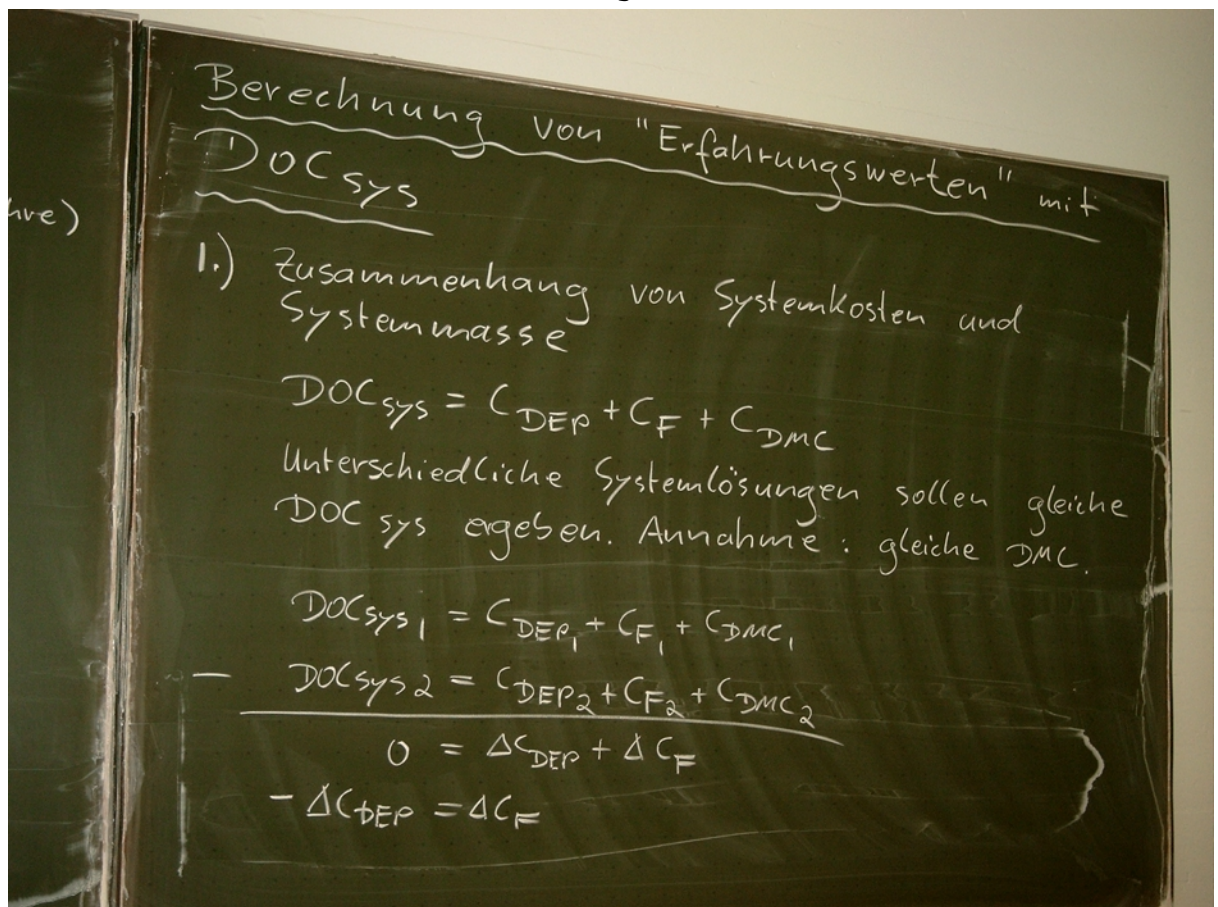 Berechnung von "Erfahrungswerten" mit
DOCsys
1.) Zusammenhang von Systemkosten und
Systemmasse
DOCsys = C_DEP + C_F + C_DMC
Unterschiedliche Systemlösungen sollen gleiche
DOC sys ergeben. Annahme: gleiche DMC.
DOCsys1 = C_DEP1 + C_F1 + C_DMC1
- DOCsys2 = C_DEP2 + C_F2 + C_DMC2
0 = ΔC_DEP + ΔC_F
- ΔC_DEP = ΔC_F